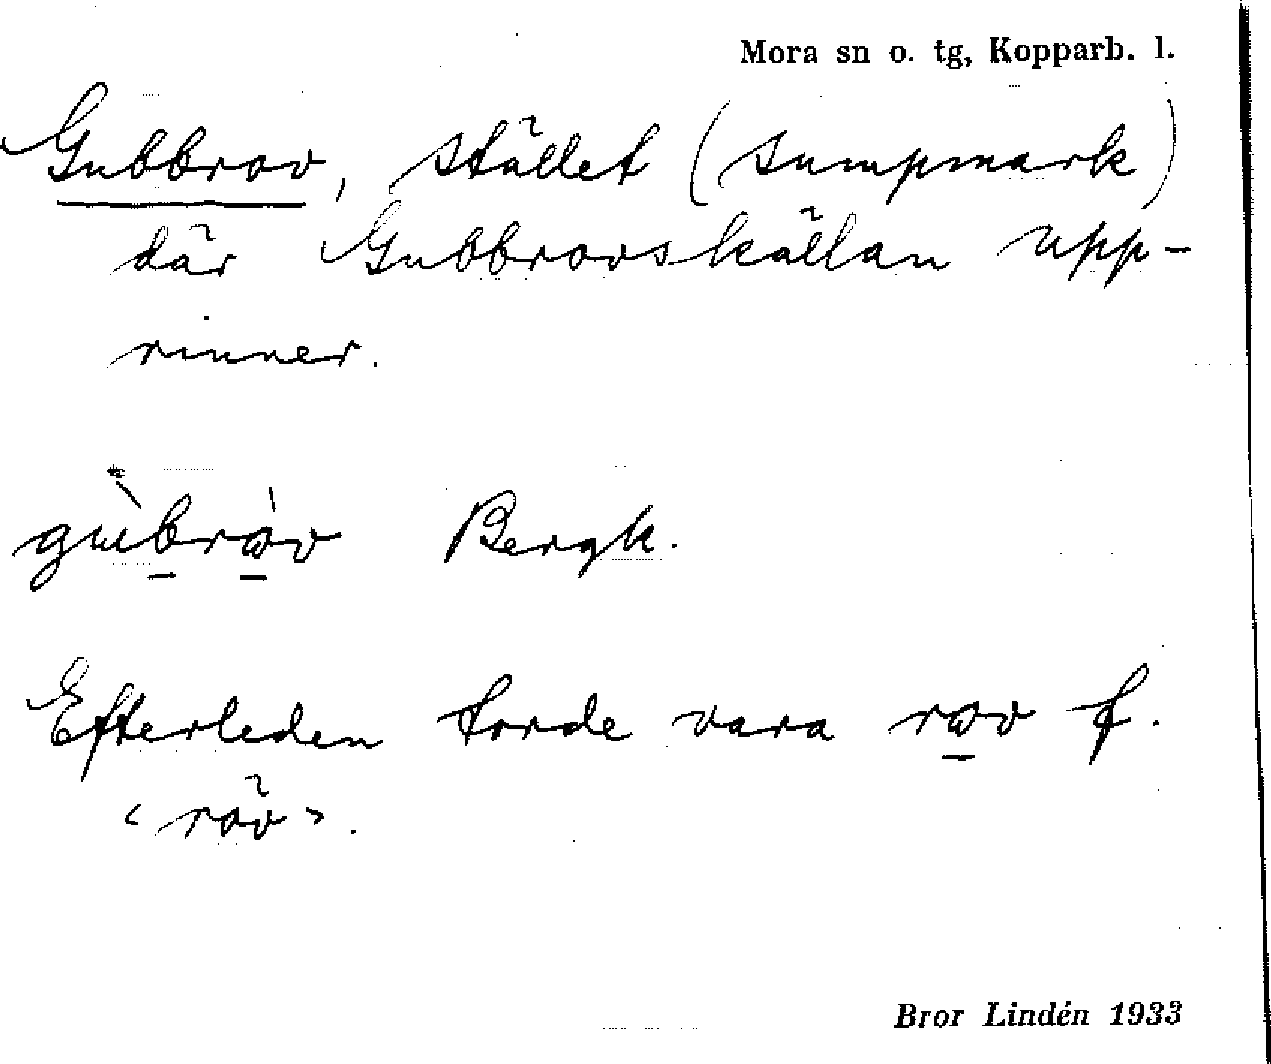 Mora sn o. tg, Kopparb. l.
Gubbrov, stället (sumpmark)
där Gubbrovskällan upp-
rinner.
gùbròv Bergk.
Efterleden torde vara rov f.
‹röv›.
Bror Lindén 1933